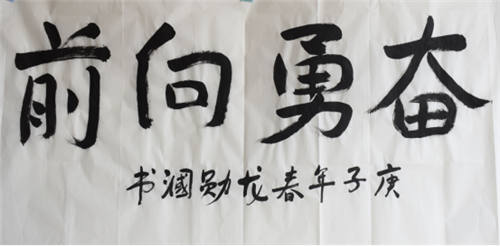 奋勇向前
庚子年春龙勋国书